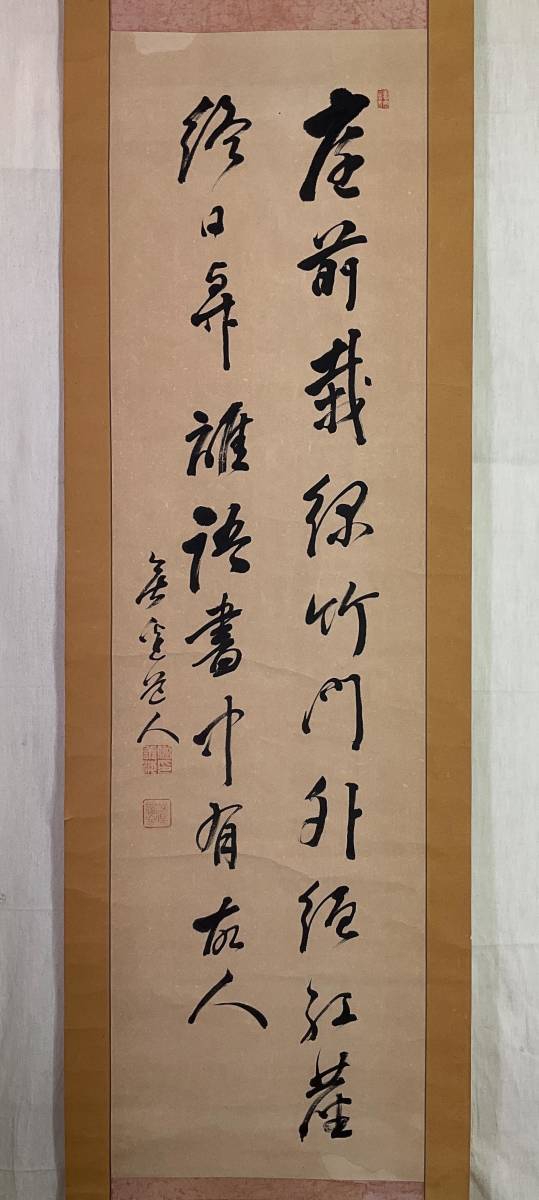 庭前栽緑竹門外絶紅塵
終日與誰語書中有故人
道人